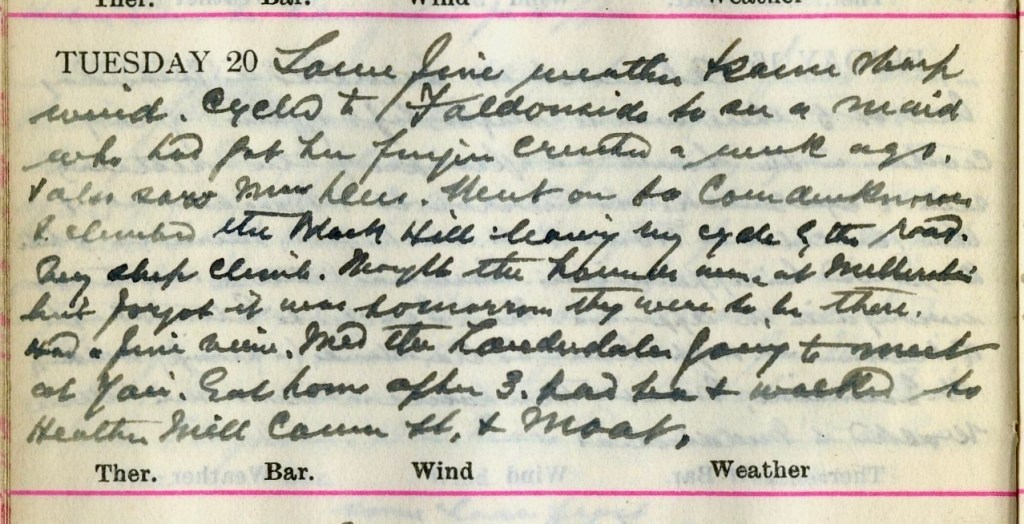 Ther. Bar. Wind Weather
TUESDAY 20 Same fine weather & same sharp
wind. Cycled to Faldonside to see a maid
who had got her finger crushed a week ago.
& also saw Miss . Went on to Cowdenknowes
& climbed the Black Hill leaving my cycle by the road.
Very steep climb. Thought the hounds were at
but forgot it was tomorrow they were to be there.
Had a fine view. Met the Lauderdales going to meet
at Yair. Got home after 3. had tea & walked to
Heather Mill St, & Moat.
Ther. Bar. Wind Weather